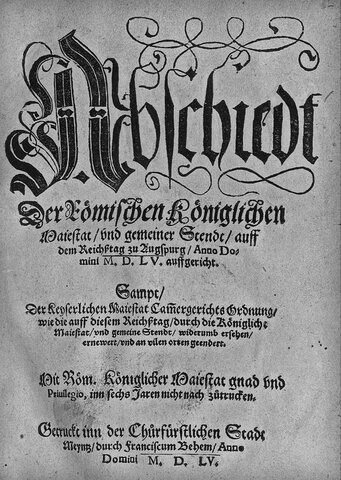 Abschiedt
Der Römischen Königlichen
Maiestat / vnd gemeiner Stendt / auff
dem Reichßtag zu Augspurg / Anno Do-
mini M. D. LV. auffgericht.
Sampt /
Der Keyserlichen Maiestat Cam̃ergerichts Ordnung /
wie die auff diesem Reichßtag / durch die Königliche
Maiestat / vnd gemeine Stendt / widerumb ersehen /
ernewert / vnd an vilen orten geendert.
Mit Röm. Königlicher Maiestat gnad vnd
Priuilegio, inn sechs Jaren nicht nach zůtrucken.
Getruckt inn der Churfürstlichen Stadt
Meyntz / durch Franciscum Behem / Anno
Domini M. D. LV.